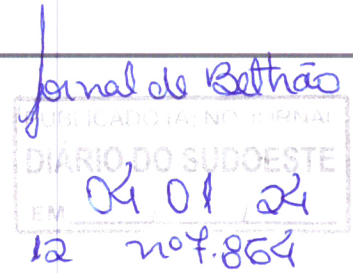 Jornal de Beltrão
PUBLICADO(A) NO JORNAL
DIÁRIO DO SUDOESTE
EM 04 01 24
12 nº 7.864